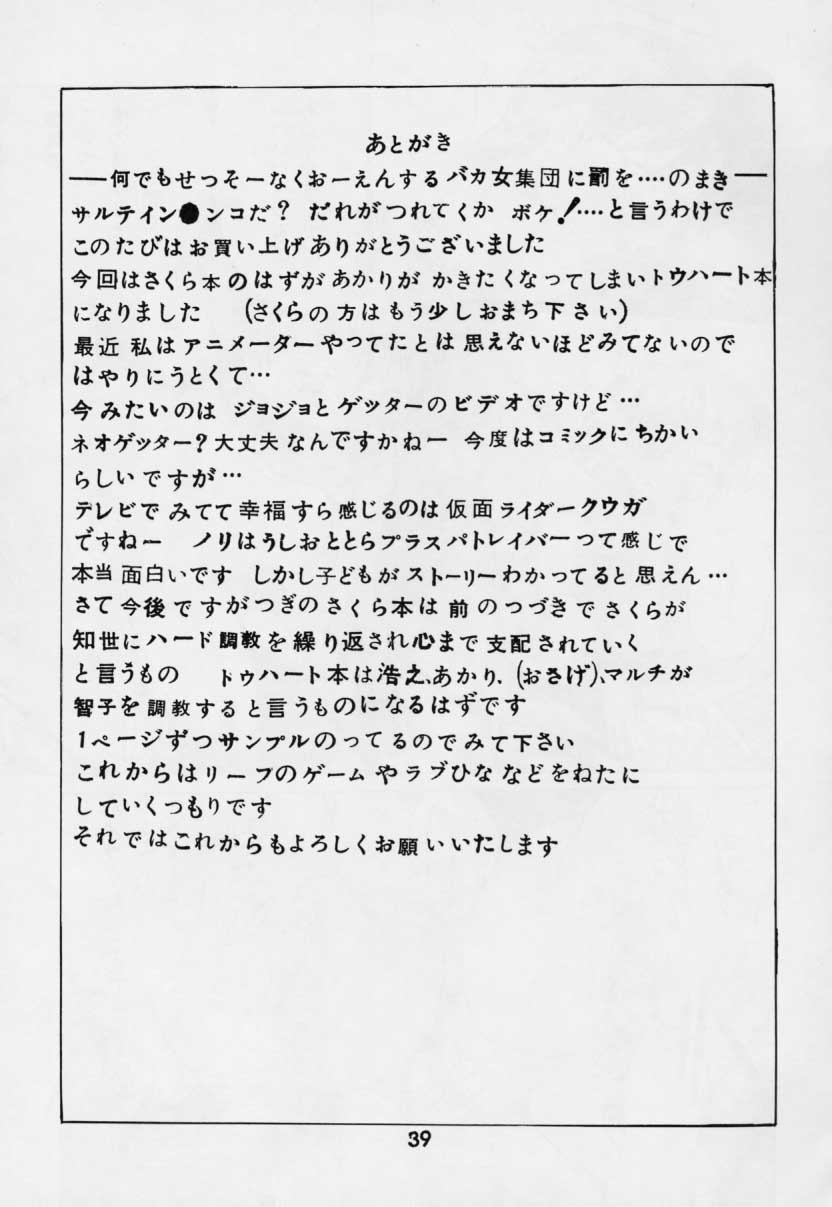 あとがき
──何でもせっそーなくおーえんするバカ女集団に罰を‥‥のまき─
サルティン●ンコだ？ だれがつれてくか ボケ！‥‥と言うわけで
このたびはお買い上げありがとうございました
今回はさくら本のはずがあかりが かきたくなってしまいトウハート本
になりました (さくらの方はもう少しおまち下さい)
最近 私はアニメーターやってたとは思えないほどみてないので
はやりにうとくて…
今みたいのは ジョジョとゲッターのビデオですけど…
ネオゲッター？大丈夫なんですかねー 今度はコミックにちかい
らしいですが…
テレビでみてて幸福すら感じるのは仮面ライダークウガ
ですねー ノリはうしおととらプラスパトレイバーって感じで
本当面白いです しかし子どもがストーリーわかってると思えん…
さて今後ですがつぎのさくら本は前のつづきでさくらが
知世にハード調教を繰り返され心まで支配されていく
と言うもの トゥハート本は浩之、あかり、(おさげ)、マルチが
智子を調教すると言うものになるはずです
1ページずつサンプルのってるのでみて下さい
これからはリーフのゲームやラブひななどをねたに
していくつもりです
それではこれからもよろしくお願いいたします
39